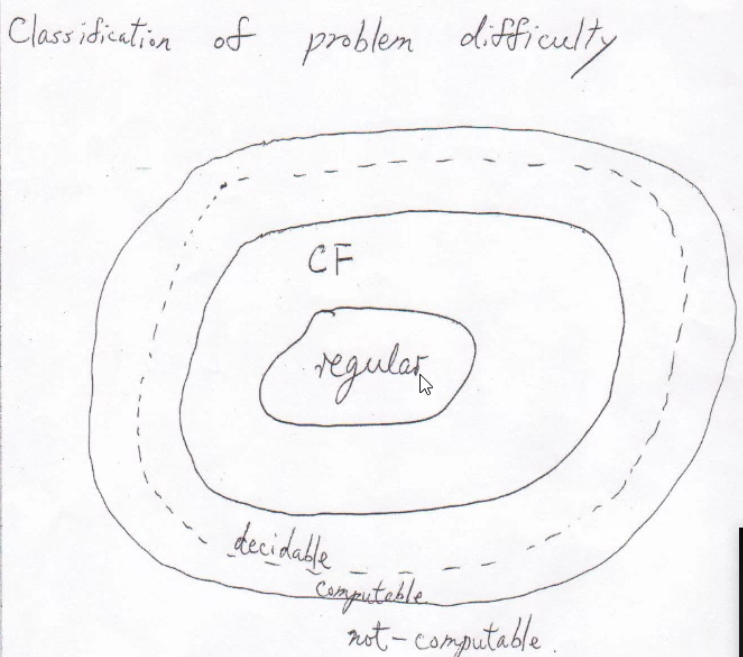 Classification of problem difficulty
CF
regular
decidable
computable
not-computable.